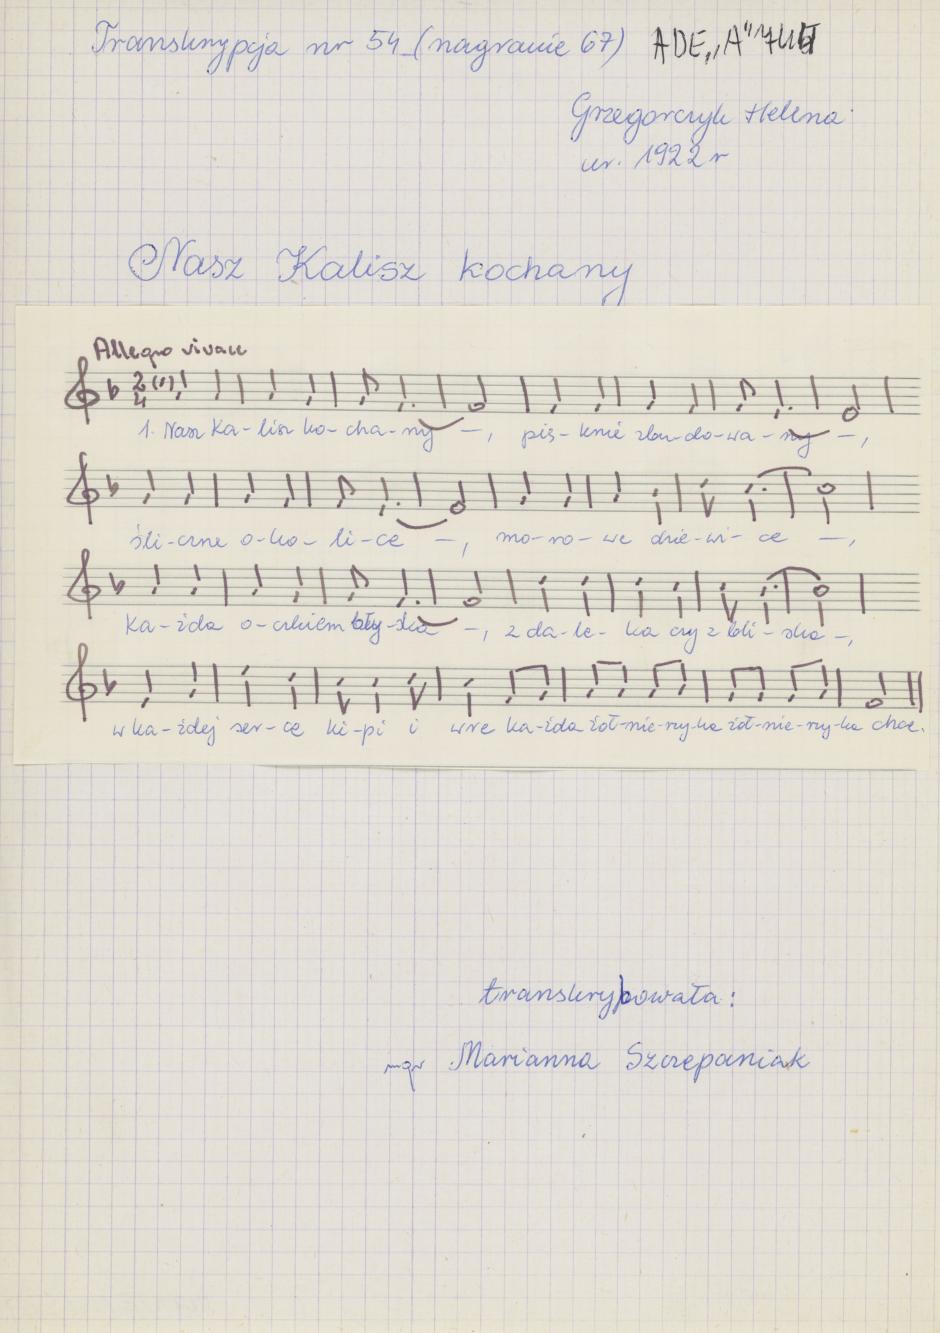 Transkrypcja nr 54 (nagranie 67) ADE "A"
Grzegorczyk Helena
ur. 1922 r
Nasz Kalisz kochany
Allegro vivace
2
4
1. Nasz Ka-lisz ko-cha-ny -, pię-knie zbu-do-wa-ny -,
śli-czne o-ko-li-ce -, mo-ro-we dzie-wi-ce -,
Ka-żda o-czkiem bły-ska -, z da-le-ka czy z bli-ska -,
w ka-żdej ser-ce ki-pi i wre ka-żda żoł-nie-rzy-ka żoł-nie-rzy-ka chce.
transkrybowała:
mgr Marianna Szczepaniak